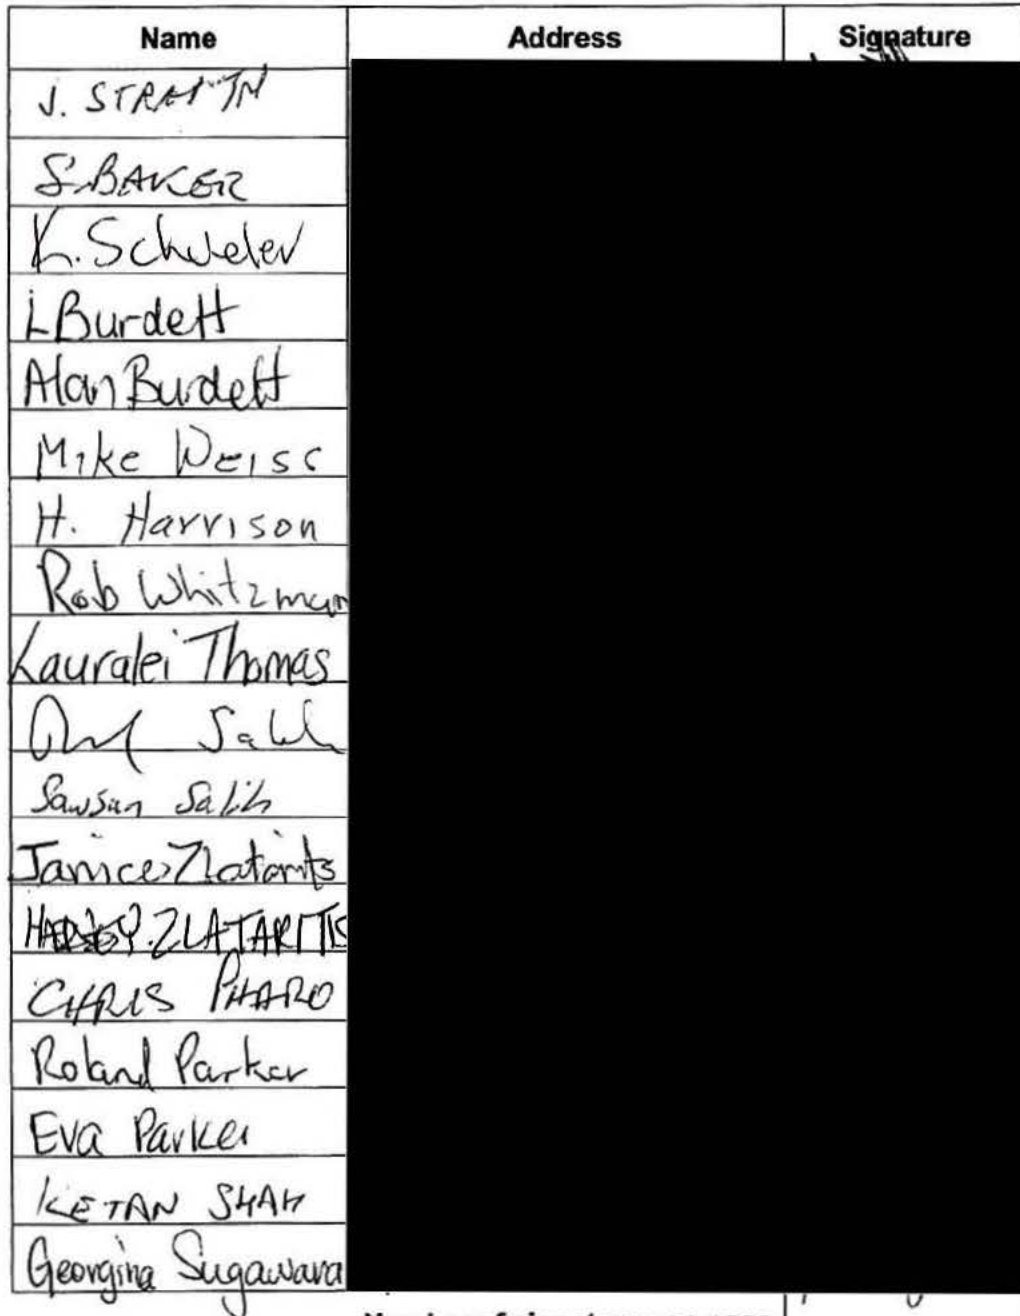 Name Address Signature
J.
S. BAKER
K.
L Burdett
Alan Burdett
Mike Weiss
H. Harrison
Rob Whitzman
Lauralei Thomas
Salih
Sawsan Salih
Janice Zlataritis
ZLATARITIS
CHRIS PHARO
Roland Parker
Eva Parker
KETAN SHAH
Georgina Sugawara